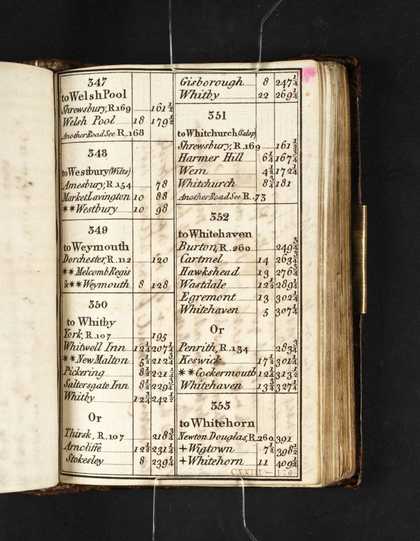 347
to Welsh Pool
Shrewsbury, R.169 161½
Welsh Pool 18 179½
Another Road See R.168
348
to Westbury (Wilts)
Amesbury, R.154 78
Market Lavington 10 88
**Westbury 10 98
349
to Weymouth
Dorchester, R.112 120
**Melcomb Regis
&**Weymouth 8 128
350
to Whitby
York, R.107 195
Whitwell Inn 12¼ 207¼
**New Malton 5¼ 212½
Pickering 8¾ 221¼
Saltersgate Inn 8½ 229¾
Whitby 12¾ 242½
Or
Thirsk, R.107 218¾
Arncliffe 12½ 231¼
Stokesley 8 239¼
Gisborough 8 247¼
Whitby 22 269¼
351
to Whitchurch (Salop)
Shrewsbury, R.169 161½
Harmer Hill 6¼ 167¾
Wem 4½ 172¼
Whitchurch 8¾ 181
Another Road See R.73
352
to Whitehaven
Burton, R.260 249¾
Cartmel 14 263¾
Hawkshead 13 276¾
Wastdale 12½ 289¼
Egremont 13 302¼
Whitehaven 5 307¼
Or
Penrith, R.134 283¾
Keswick 17½ 301¼
**Cockermouth 12¼ 313½
Whitehaven 13¾ 327¼
353
to Whitehorn
Newton Douglas, R.260 391
+Wigtown 7½ 398½
+Whitehorn 11 409½